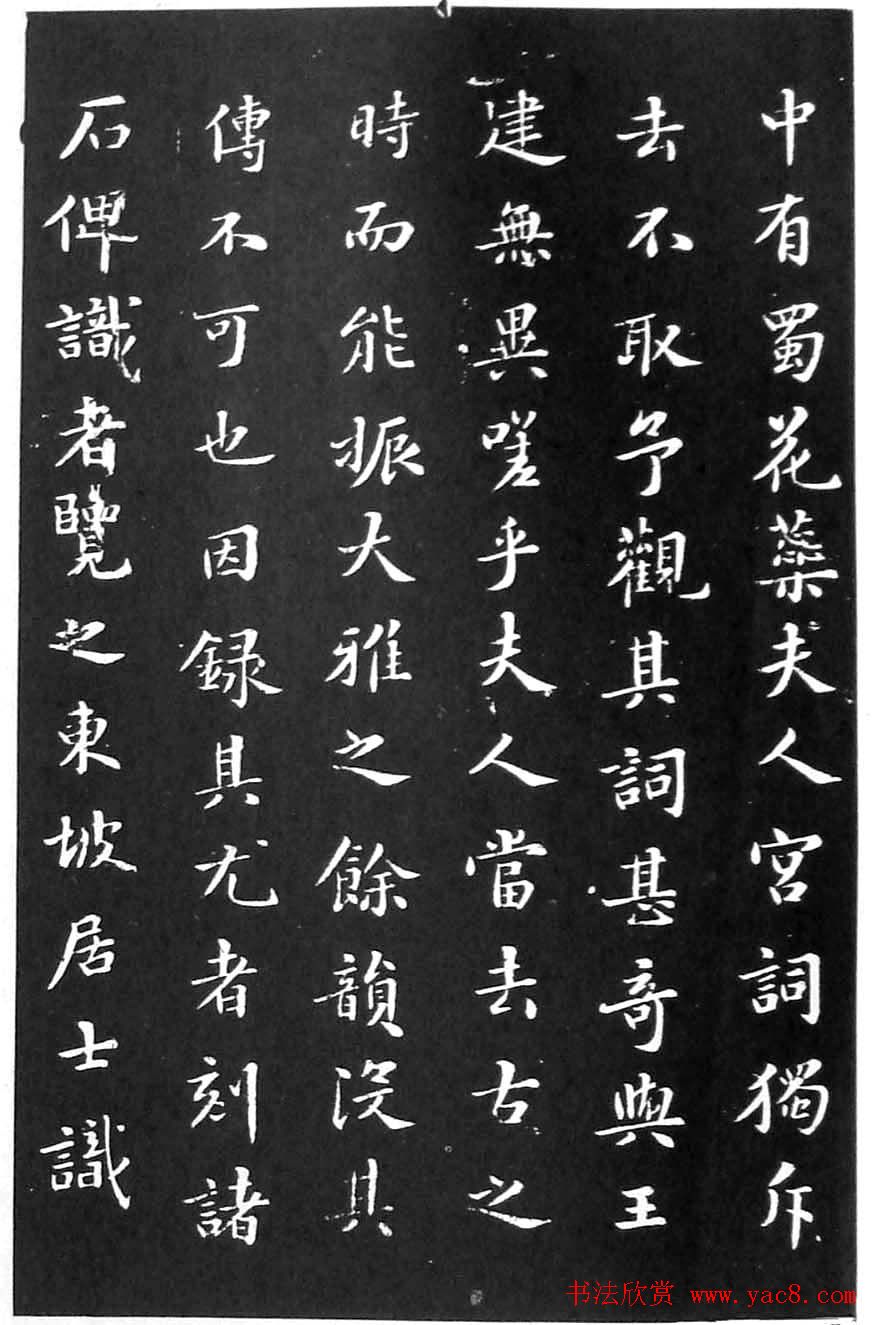 中有蜀花蘂夫人宮詞獨斥
去不取予觀其詞甚奇與王
建無異嗟乎夫人當去古之
時而能振大雅之餘韻沒其
傳不可也因録其尤者刻諸
石俾識者覽之東坡居士識
书法欣赏 www.yac8.com